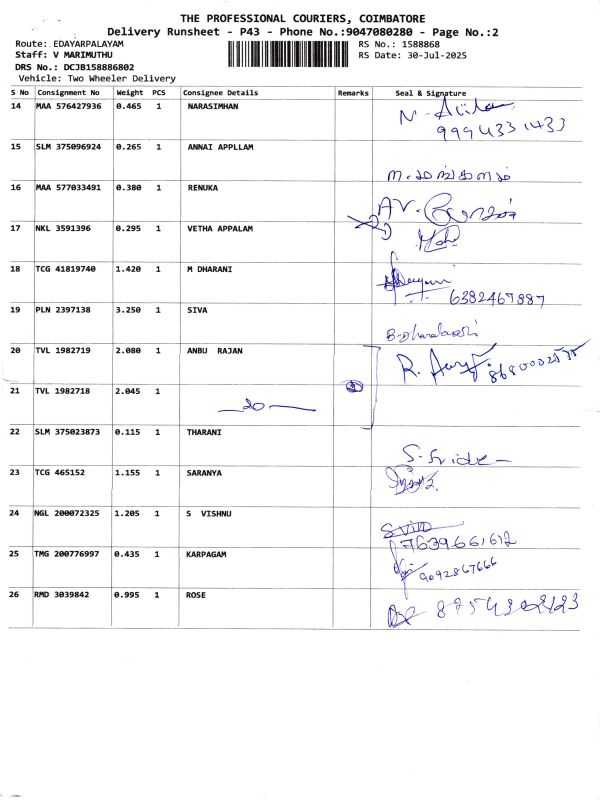 THE PROFESSIONAL COURIERS, COIMBATORE
Delivery Runsheet - P43 - Phone No.:9047080280 - Page No.:2
Route: EDAYARPALAYAM
RS No.: 1588868
Staff: V MARIMUTHU
RS Date: 30-Jul-2025
DRS No.: DCJB158886802
Vehicle: Two Wheeler Delivery
S No Consignment No Weight PCS Consignee Details Remarks Seal & Signature
14 MAA 576427936 0.465 1 NARASIMHAN
9994331433
15 SLM 375096924 0.265 1 ANNAI APPLLAM
16 MAA 577033491 0.380 1 RENUKA
17 NKL 3591396 0.295 1 VETHA APPALAM
18 TCG 41819740 1.420 1 M DHARANI
6382467887
19 PLN 2397138 3.250 1 SIVA
20 TVL 1982719 2.080 1 ANBU RAJAN
21 TVL 1982718 2.045 1
22 SLM 375023873 0.115 1 THARANI
23 TCG 465152 1.155 1 SARANYA
24 NGL 200072325 1.205 1 S VISHNU
7639661612
25 TMG 200776997 0.435 1 KARPAGAM
9092867666
26 RMD 3039842 0.995 1 ROSE